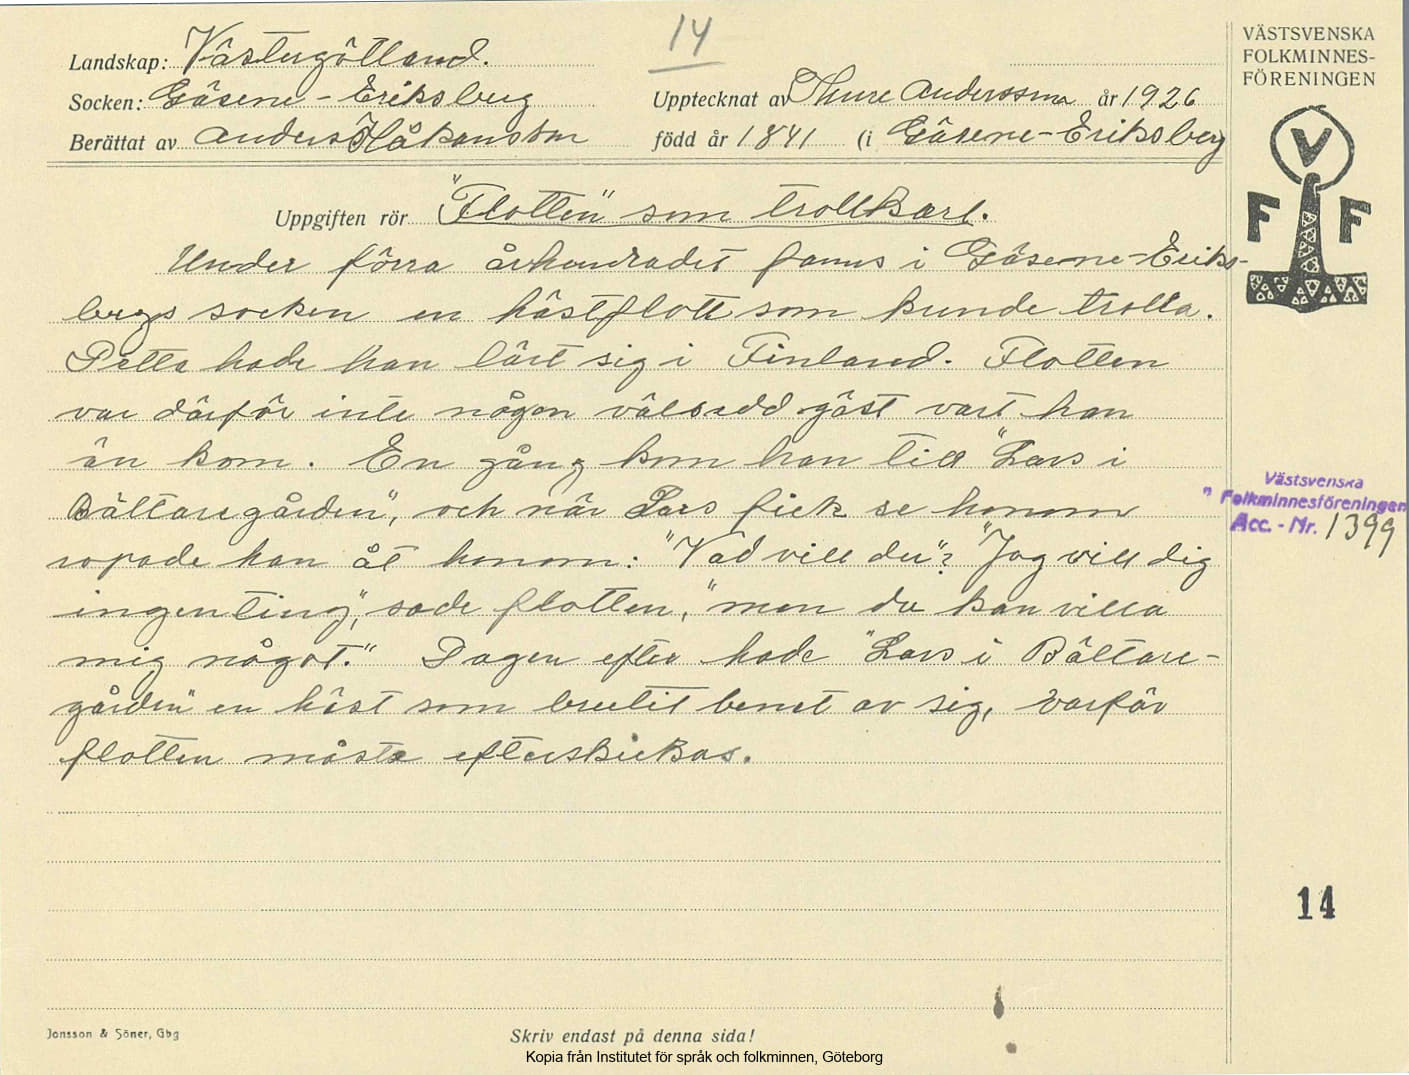 14
VÄSTSVENSKA
FOLKMINNES-
FÖRENINGEN
Landskap: Västergötland.
Socken: Gäsene-Eriksberg
Upptecknat av Thure Andersson år 1926
Berättat av Anders Håkansson
född år 1841 (i Gäsene-Eriksberg
V
F F
Uppgiften rör "Flotten" som trollkarl.
Under förra århundradet fanns i Gäsene-Eriks-
bergs socken en hästflott som kunde trolla.
Detta hade han lärt sig i Finland. Flotten
var därför inte någon välsedd gäst vart han
än kom. En gång kom han till "Lars i
Bältaregården", och när Lars fick se honom
ropade han åt honom: "Vad vill du"? "Jag vill dig
ingenting", sade flotten, "men du kan villa
mig något." Dagen efter hade "Lars i Bältare-
gården" en häst som brutit benet av sig, varför
flotten måste efterskickas.
Västsvenska
Folkminnesföreningen
Acc.-Nr. 1399
14
Jonsson & Söner, Gbg
Skriv endast på denna sida!
Kopia från Institutet för språk och folkminnen, Göteborg